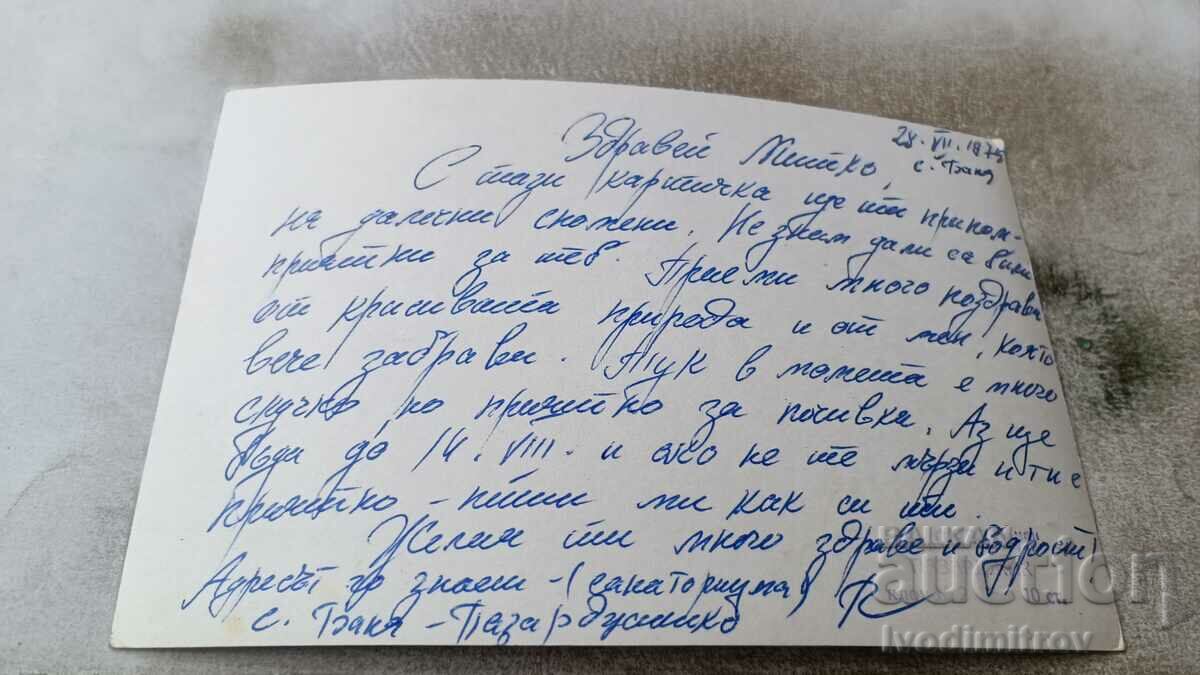 28.VII.1975
с. Баня
Здравей Митко,
С тази картичка ще ти припом-
ня далечни спомени. Не знам дали са били
приятни за теб. Приеми много поздрави
от красивата природа и от мен, която
вече забрави. Тук в момента е много
скучно но приятно за почивка. Аз ще
бъда до 14.VIII. и ако не те мързи и ти е
приятно - пиши ми как си ти.
Желая ти много здраве и бодрост!
Адресът го знаеш - (санаториума)
с. Баня - Пазарджишко
auction
Ivodimitrov